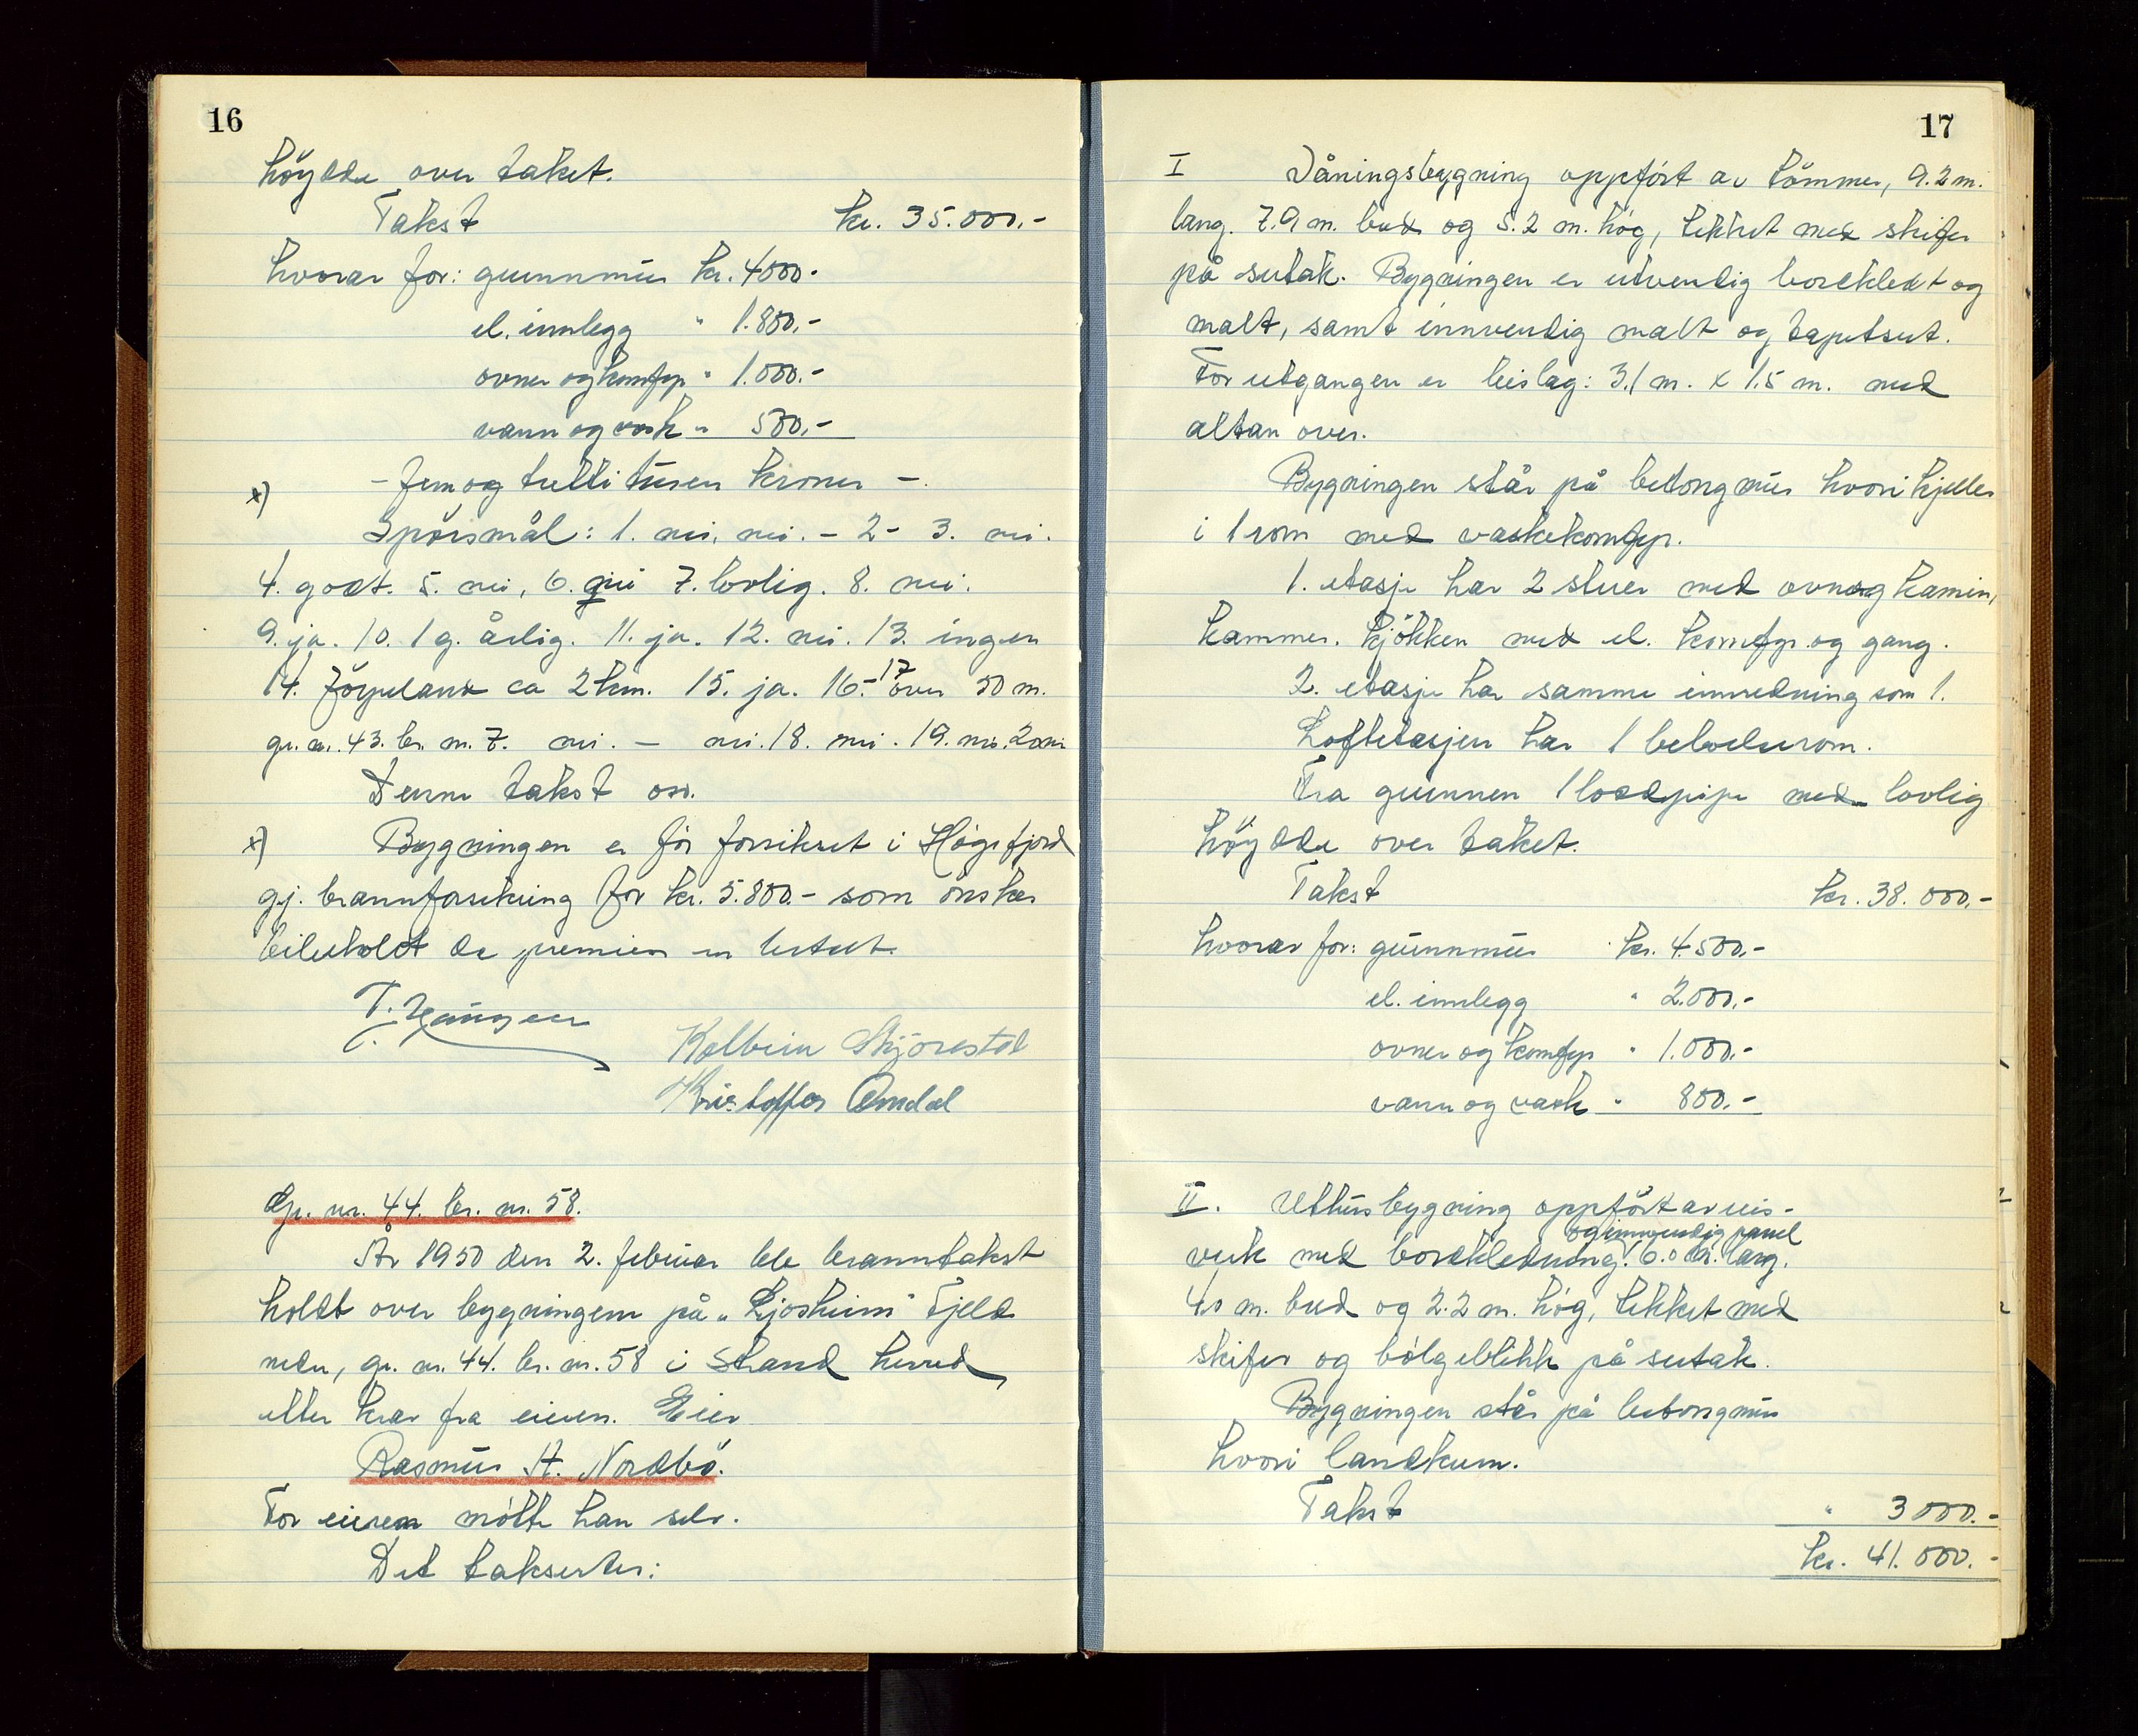 16
höydde over taket.
Takst kr. 35.000.-
hvorav for: grunnmur kr. 4000.-
el. innlegg " 1.800.-
ovner og komfyr " 1.000.-
vann og vask " 500.-
x) - fem og tretti tusen kroner -.
Spörsmål: 1. nei, nei. - 2 - 3. nei.
4. godt. 5. nei, 6. 7. lovlig. 8. nei.
9. ja. 10. 1 g. årlig. 11. ja. 12. nei. 13. ingen
14. Jörpeland ca 2 km. 15. ja. 16.- 17 över 50 m.
gr. nr. 43. br. nr. 7. nei. - nei. 18. nei. 19. nei. 20 nei
Denne takst osv.
x) Bygningen er för forsikret i Högsfjord
gj. brannforsikring for kr. 5.800.- som önskes
beibeholdt da premien er betalt.
T.
Kolbein Skjörestad
Kristoffer Omdal
Gr. nr. 44. br. nr. 58.
År 1950 den 2. februar ble branntakst
holdt over bygningene på "Ljosheim" Fjelde
nedre, gr. nr. 44. br. nr. 58 i Strand herred
etter krav fra eieren. Eier
Rasmus A. Nordbö.
For eieren mötte han selv.
Det takseres:
17
I Våningsbygning oppfört av tömmer, 9.2 m.
lang. 7.9 m. bred og 5.2 m. hög, tekket med skifer
på sutak. Bygningen er utvendig bordkledt og
malt, samt innvendig malt og tapetsert.
For utgangen er bislag: 3.1 m. x 1.5 m. med
altan over.
Bygningen står på betongmur hvori kjeller
i 1 rom med vaskekomfyr.
1. etasje har 2 stuer med ovn og kamin,
kammer. kjökken med el. komfyr og gang.
2. etasje har samme innredning som 1.
Loftetasjen har 1 beboelserom.
Fra grunnen 1 loddpipe med lovlig
höydde over taket.
Takst kr. 38.000.-
hvorav for: grunnmur kr. 4.500.-
el. innlegg " 2.000.-
ovner og komfyr " 1.000.-
vann og vask " 800.-
II. Uthusbygning oppfört av reis-
og innvendig panel
verk med bordkledning. 6.0 m. lang.
4.0 m. bred og 2.2 m. hög, tekket med
skifer og bölgeblikk på sutak.
Bygningen står på betongmur
hvori landkum.
Takst " 3000.-
kr. 41.000.-